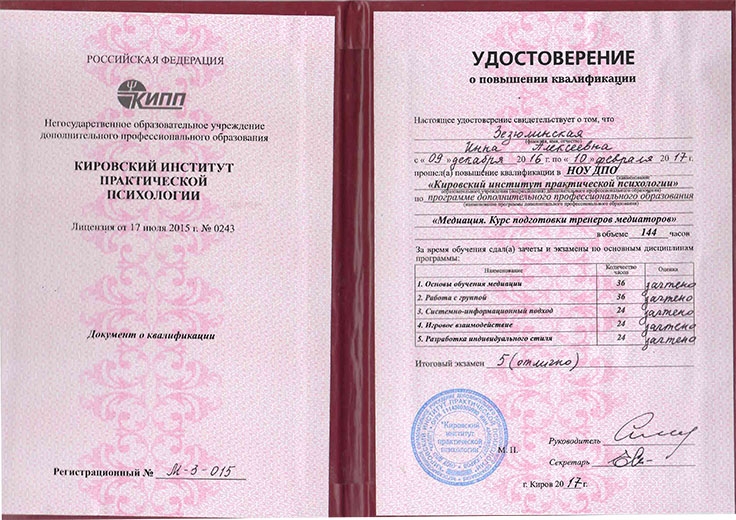 РОССИЙСКАЯ ФЕДЕРАЦИЯ
КИПП
Негосударственное образовательное учреждение
дополнительного профессионального образования
КИРОВСКИЙ ИНСТИТУТ
ПРАКТИЧЕСКОЙ
ПСИХОЛОГИИ
Лицензия от 17 июля 2015 г. № 0243
Документ о квалификации
Регистрационный № М-3-015
УДОСТОВЕРЕНИЕ
о повышении квалификации
Настоящее удостоверение свидетельствует о том, что
Зезюлинская
(фамилия, имя, отчество)
Инна Алексеевна
с « 09 » декабря 2016 г. по « 10 » февраля 2017 г.
прошел(а) повышение квалификации в НОУ ДПО
(наименование
«Кировский институт практической психологии»
образовательного учреждения (подразделения) дополнительного профессионального образования)
по программе дополнительного профессионального образования
(наименование программы дополнительного профессионального образования)
«Медиация. Курс подготовки тренеров медиаторов»
в объеме 144 часов
За время обучения сдал(а) зачеты и экзамены по основным дисциплинам
программы:
Наименование Количество часов Оценка
1. Основы обучения медиации 36 зачтено
2. Работа с группой 36 зачтено
3. Системно-информационный подход 24 зачтено
4. Игровое взаимодействие 24 зачтено
5. Разработка индивидуального стиля 24 зачтено
Итоговый экзамен 5 (отлично)
"Кировский
институт
практической
психологии"
М. П.
Руководитель
Секретарь
г. Киров 2017 г.